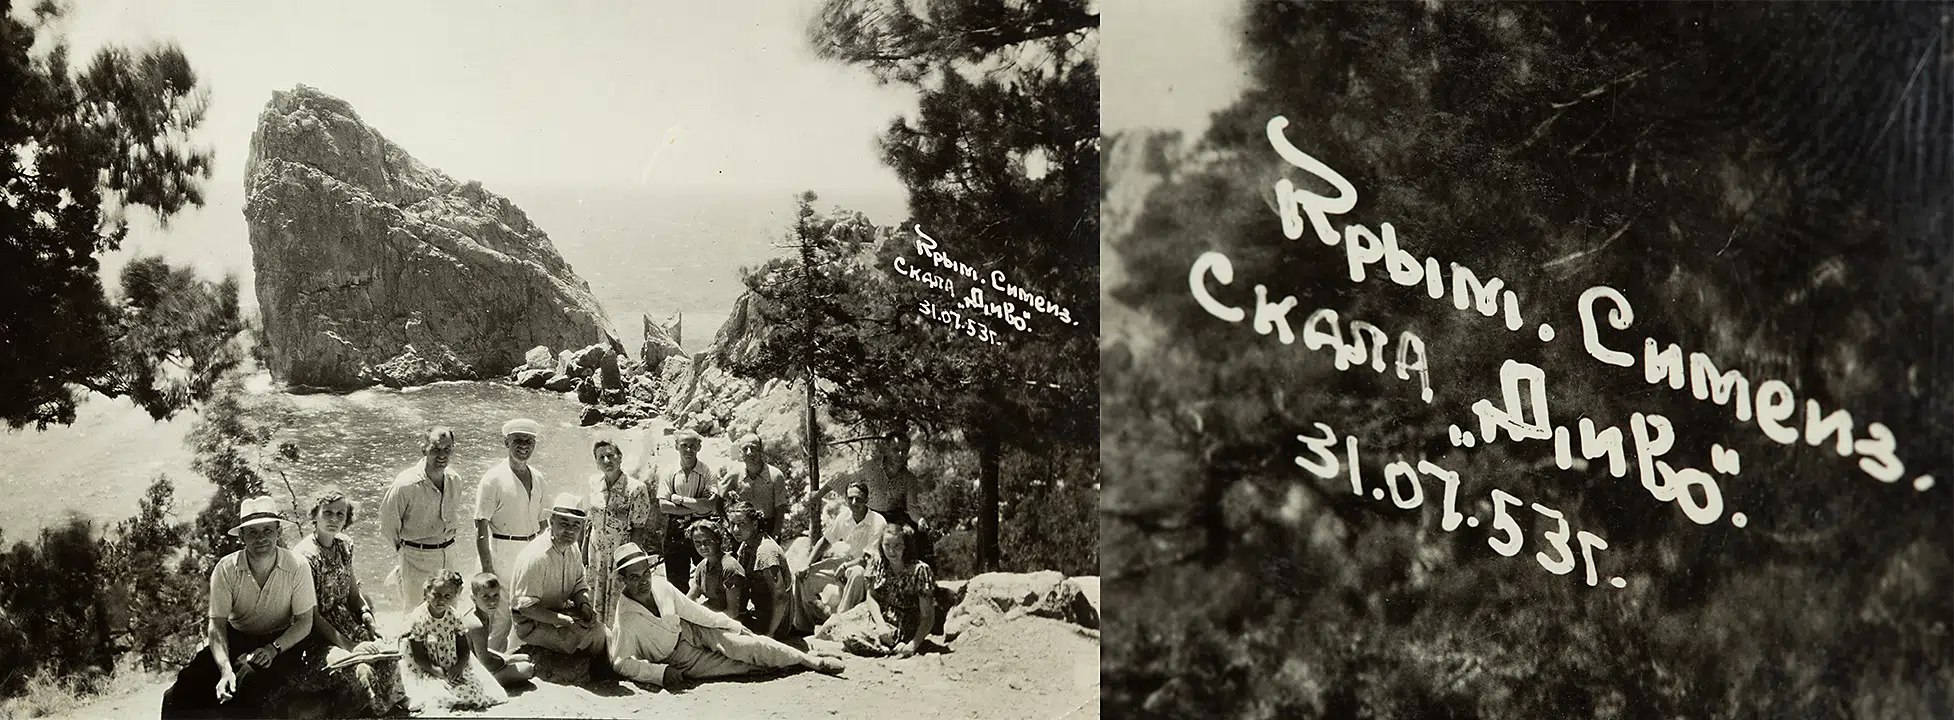 Крым. Симеиз.
Скала „Диво“.
31.07.53г.
Крым. Симеиз.
Скала „Диво“.
31.07.53г.